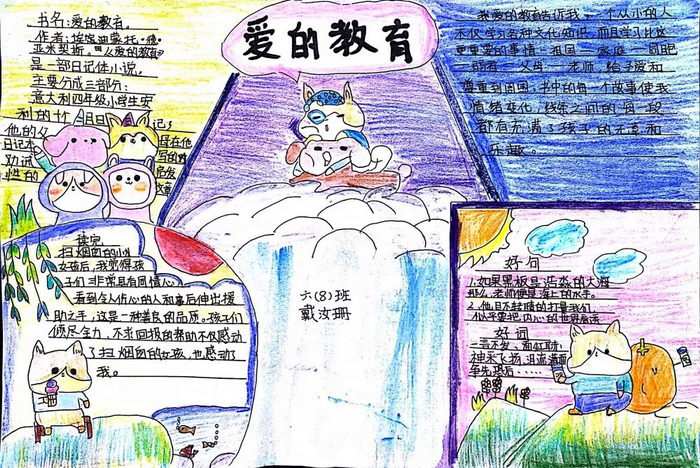 爱的教育
书名：爱的教育。
作者：埃德蒙托·德·
亚米契斯。《爱的教育》
是一部日记体小说。
主要分成三部分：
意大利四年级小学生安
利的
日记本
我爱的教育告诉我，一个从小的人
不仅学习各种文化知识，而且学习比这
更重要的事情：祖国一家庭一同胞
一朋友一父母一老师，给予爱和
尊重到周围，书中的每一个故事使我
情绪变化，钱条之间的每一段
都有充满了孩子的无意和
乐趣。
读完
扫烟囱的小
女孩后，我觉得孩
子们非常具有同情心，
看到令人伤心的人和事后伸出援
助之手，这是一种善良的品质。孩子们
倾尽全力，不求回报的帮助不仅感动
了扫烟囱的女孩，也感动了
我。
六(8)班
戴汝珊
好句
1.如果黑板是浩淼的大海
那么，老师便是海上的水手。
2.他目不转睛的打量我们，
似乎要把内心的世界看透
好词
一言不发、面红耳赤
神采飞扬、泪流满面
争先恐后……